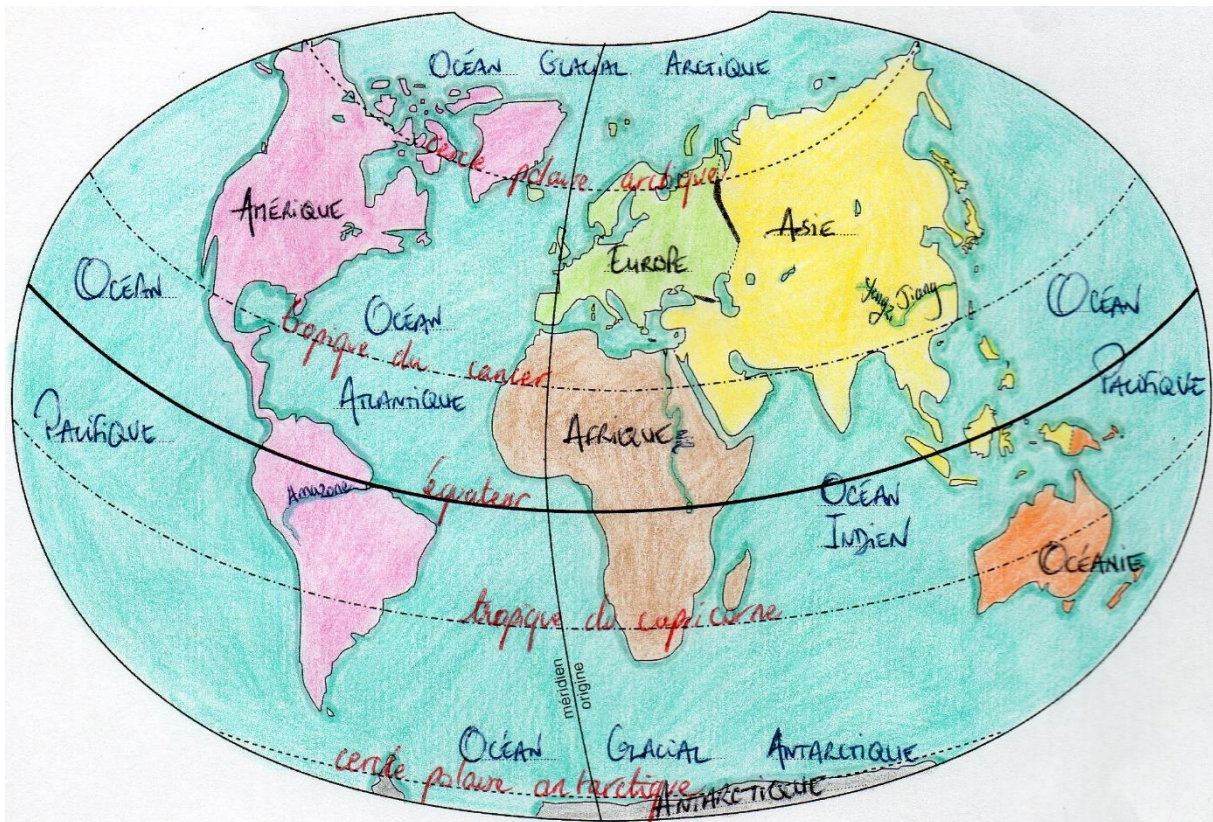 OCÉAN GLACIAL ARCTIQUE
cercle polaire arctique
AMÉRIQUE
EUROPE
ASIE
Yangzi Jiang
OCÉAN
PACIFIQUE
OCÉAN
ATLANTIQUE
tropique du cancer
OCÉAN
PACIFIQUE
AFRIQUE
Amazone
équateur
OCÉAN
INDIEN
OCÉANIE
tropique du capricorne
méridien
origine
OCÉAN GLACIAL ANTARCTIQUE
cercle polaire antarctique
ANTARCTIQUE